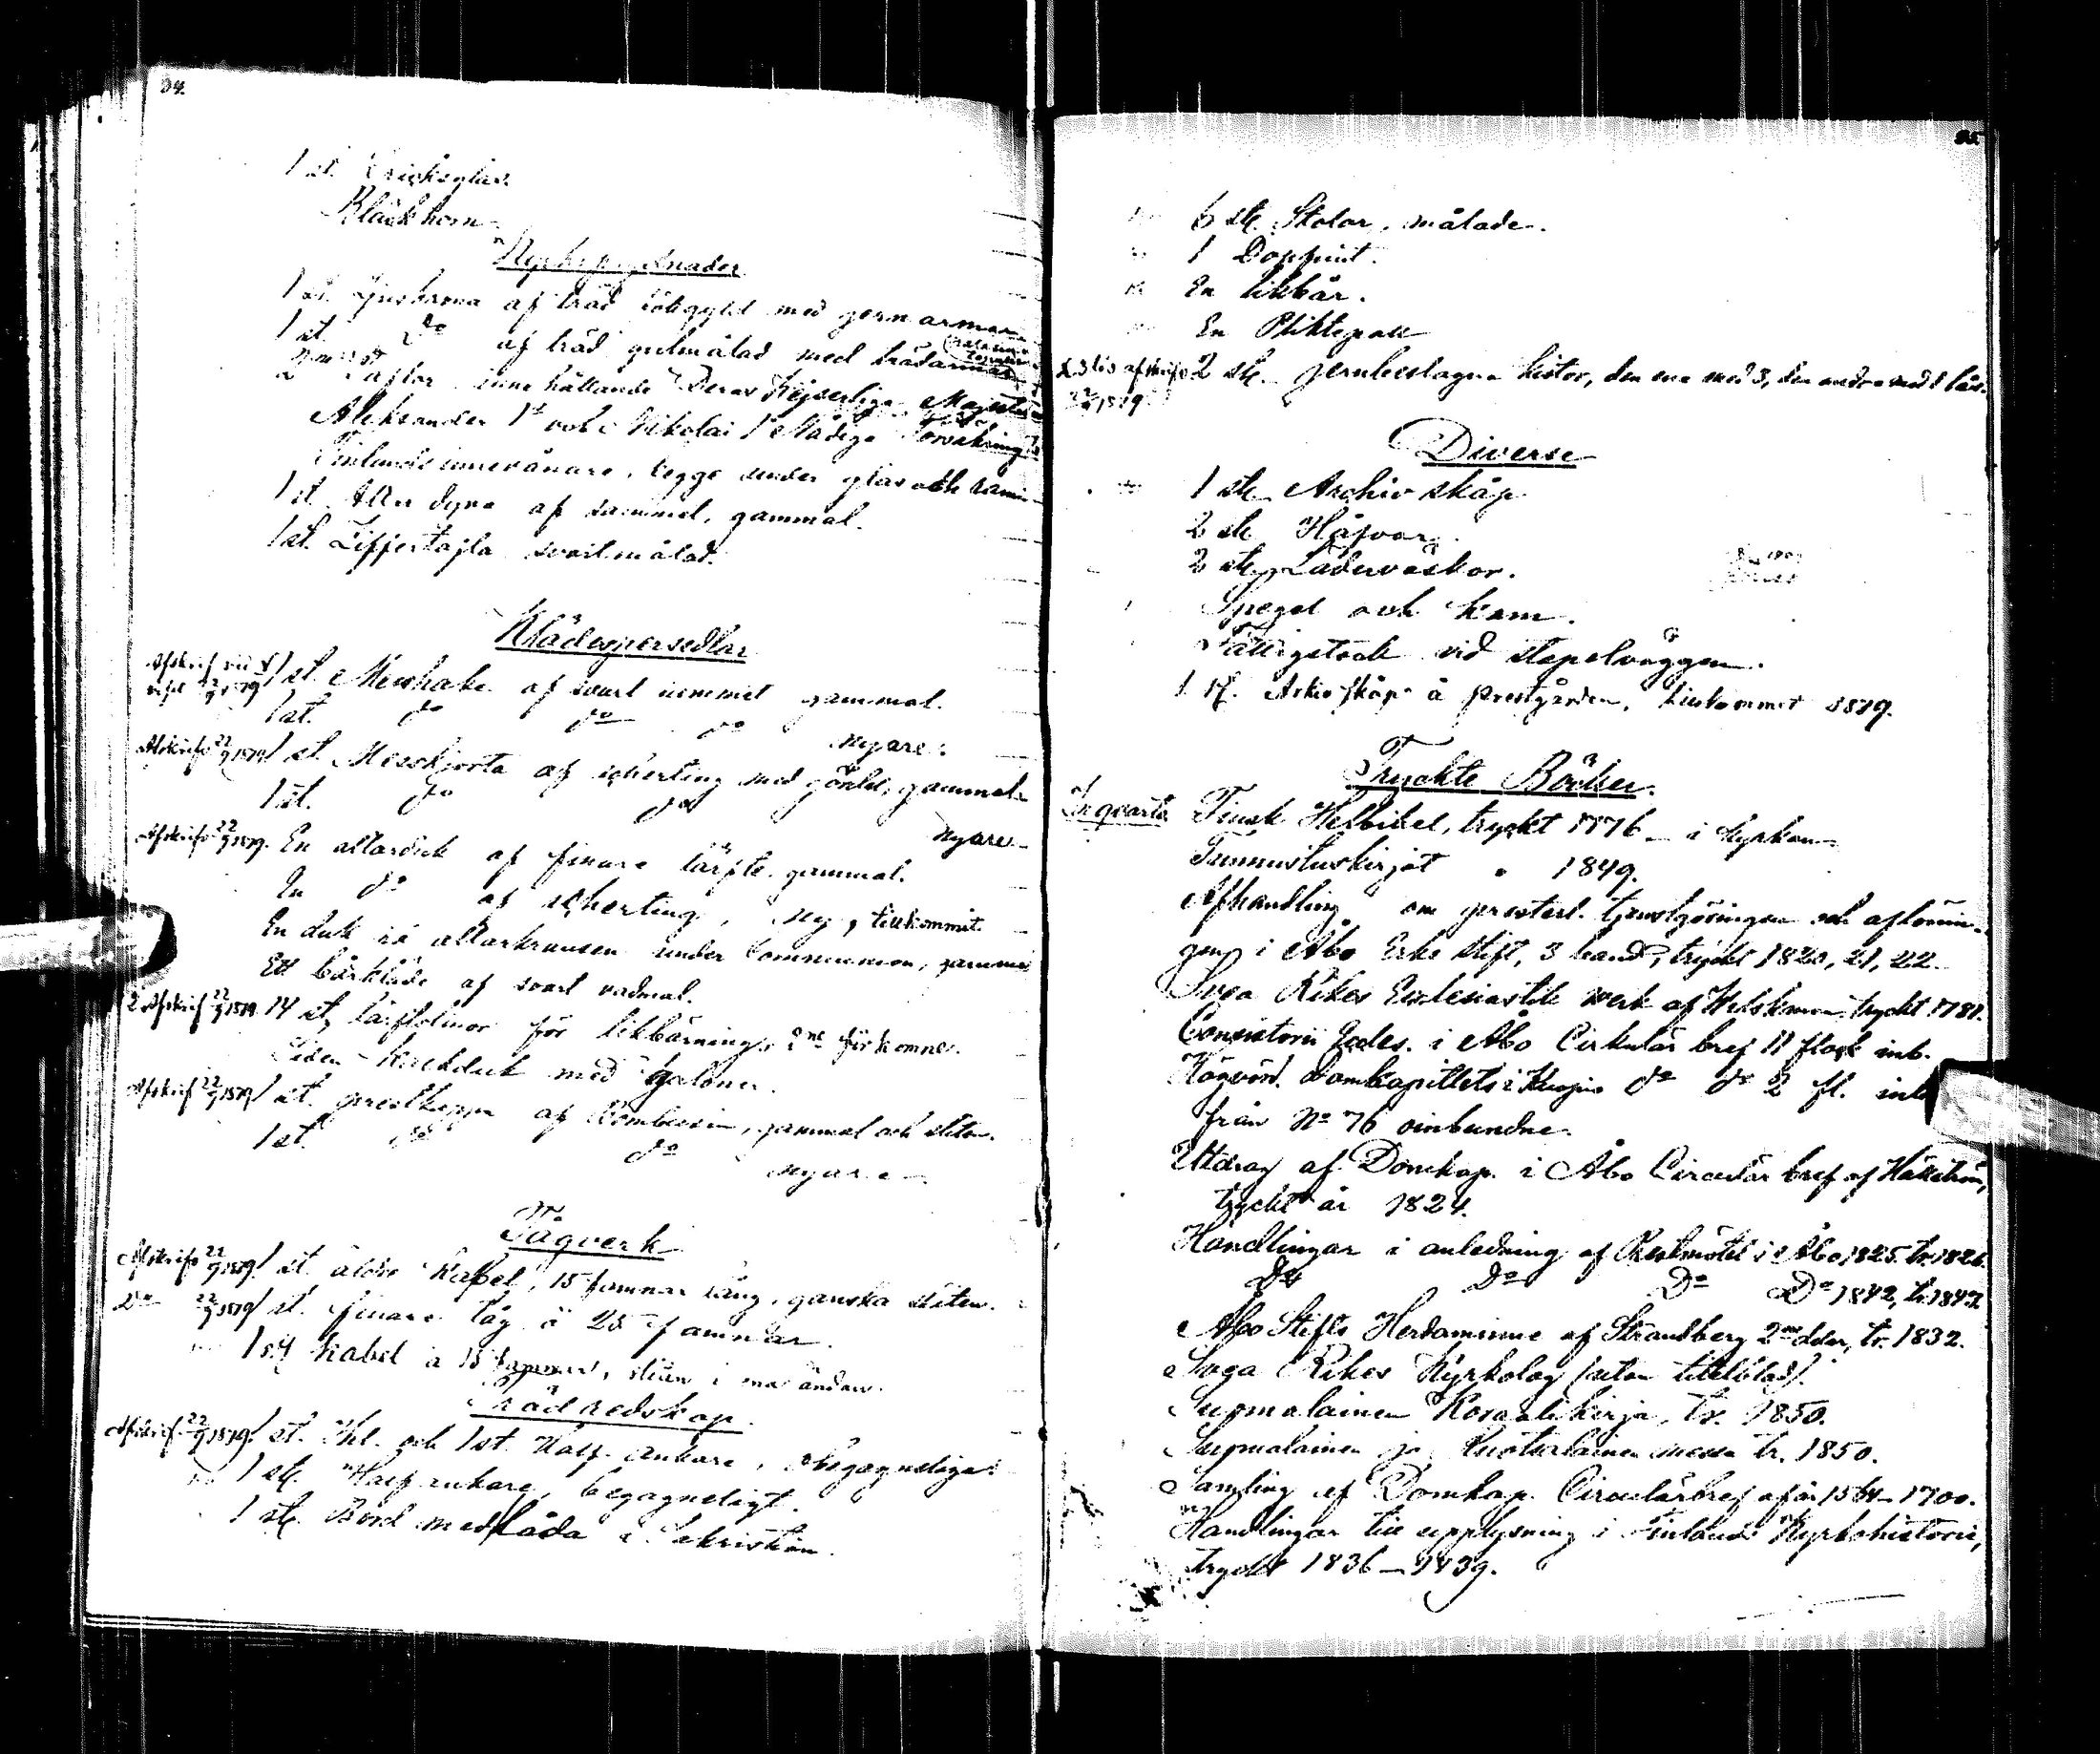 34.
1 st. Dricksglas.
Bläckhorn
Kyrkoprydnader
1 st. Ljuskrona af träd förgyld med jernarmar
1 st. do af träd gulmålad med trädarmar
2 Taflor innehållande Deras Kejserliga Majestäter
Aleksander 1s och Nikolai 1s Nådiga Försäkring
Finlands innevånare, begge under glas och ram
1 st. Altar dyna af sammet, gammal.
1 st. Ziffertafla svartmålad.
Klädespersedlar
Afskrif 22/9 1879 1 st. Messhake af svart sammet gammal.
1 st. do do do nyare.
Afskrifs 22/9 1879 1 st. Messkjorta af scherting med gördel, gammal
1 st. do do nyare
Afskrifs 22/9 1879. En altarduk af finare lärfts. gammal.
En do af scherting, ny, tillkommit.
En duk på altarkransen under Communion, gammal
Ett bårkläde af svart vadmal.
2 Afskrif 22/9 1879 14 st. lärftslinor för likbärning, 2ne förkomne.
Siden kalkduk med galoner.
Afskrif 22/9 1879 1 st. prestkappa af Bombasin, gammal och sliten.
1 st. do do nyare
Tågverk
Afskrifs 22/9 1879 1 st. äldre Kabel, 15 famnar lång, ganska sliten.
Do 22/9 1879 1 st. finare tåg à 25 famnar.
1 st. Kabel à 15 famnar, sliten i ena ändan.
Trädredskap.
Afskrif. 22/9 1879. 1 st. Hel. och 1 st. Half ankare, obegagneliga.
1 st. Half ankare, begagneligt.
1 st. Bord med låda i Sakristian.
35.
6 st. Stolar, målade.
1 Dopfunt.
En likbår.
En Pliktepall
2 st. jernbeslagna kistor, den ena med 3, den andra med 1 lås.
22/9 1879
Diverse
1 st. Archivskåp
2 st. Håfvar.
2 st. Läderväskor.
Spegel och kam.
Fattigstock vid stapelväggen.
1 st. Arkivskåp å prestgården, tillkommit 1879.
Tryckte Böcker.
In quarto Finsk Helbibel, tryckt 1776 i kyrkan
Tunnustuskirjat " 1849.
Afhandling om presterl. tjenstgöringen och aflönin-
gen i Åbo Erke stift, 3 band, tryckt 1820, 21, 22.
Svea Rikes Ecclesiastik werk af Wilskman tryckt 1781.
Consistorii Eccles. i Åbo Cirkulär bref 11 flock inb.
Högvörd. Domkapitlets i Kuopio do do 2 fl. inb
från No 76 oinbundne.
Utdrag af Domkap. i Åbo Circulär bref af Hällström,
tryckt år 1824.
Handlingar i anledning af Prestmötet i Åbo 1825. tr. 1826.
Do Do Do Do 1842, tr. 1843.
Åbo Stifts Herdaminne af Strandberg 2ne delar, tr. 1832.
Svea Rikes Kyrkolag (utan titelblad).
Suomalainen Koraalikirja, tr. 1850.
Suomalainen ja Ruotsalainen messu tr. 1850.
Samling af Domkap. Circulärbref af år 1564-1700.
Handlingar till upplysning i Finlands Kyrkohistorie,
tryckt 1836-1839.